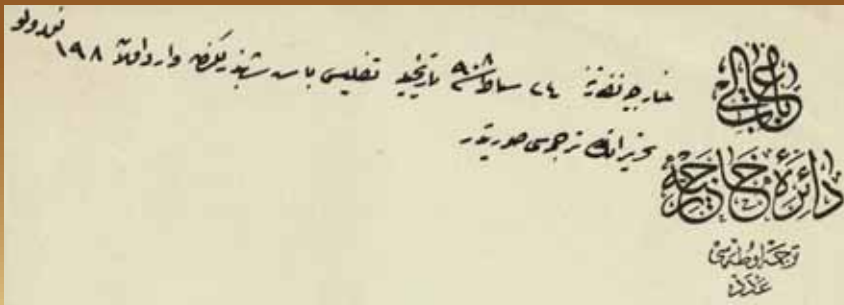 باب عالی
دائرهٔ خارجیه
ترجمه اوطه‌سی
عدد
خارجیه نظارتنه ٢٤ شباط ٩٠٨ تاریخیله تفلیس باش شهبندرلكندن وارد اولان ١٩٨ نومرولو
تحریراتك ترجمه‌سی صورتیدر